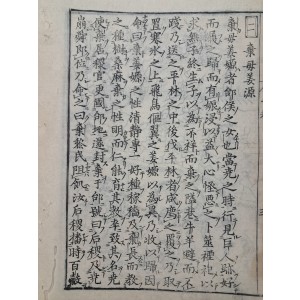 棄母姜源
棄母姜嫄者邰侯之女也當堯之時行見巨人跡好
而履之歸而有娠浸以益大心怪惡之卜筮禋祀以
求無子終生子以為不祥而棄之隘巷牛羊避而不
踐乃送之平林之中後伐平林者咸薦之覆之乃取
置寒冰之上飛鳥傴翼之姜嫄以為異乃收以歸因
命曰棄姜嫄之性清靜專一好種稼穡及棄長而教
之種樹桑麻棄之性明而仁能育其教卒致其名堯
使棄居稷官更國邰地遂封棄於邰號曰后稷及堯
崩舜即位乃命之曰棄黎民阻飢汝后稷播時百穀